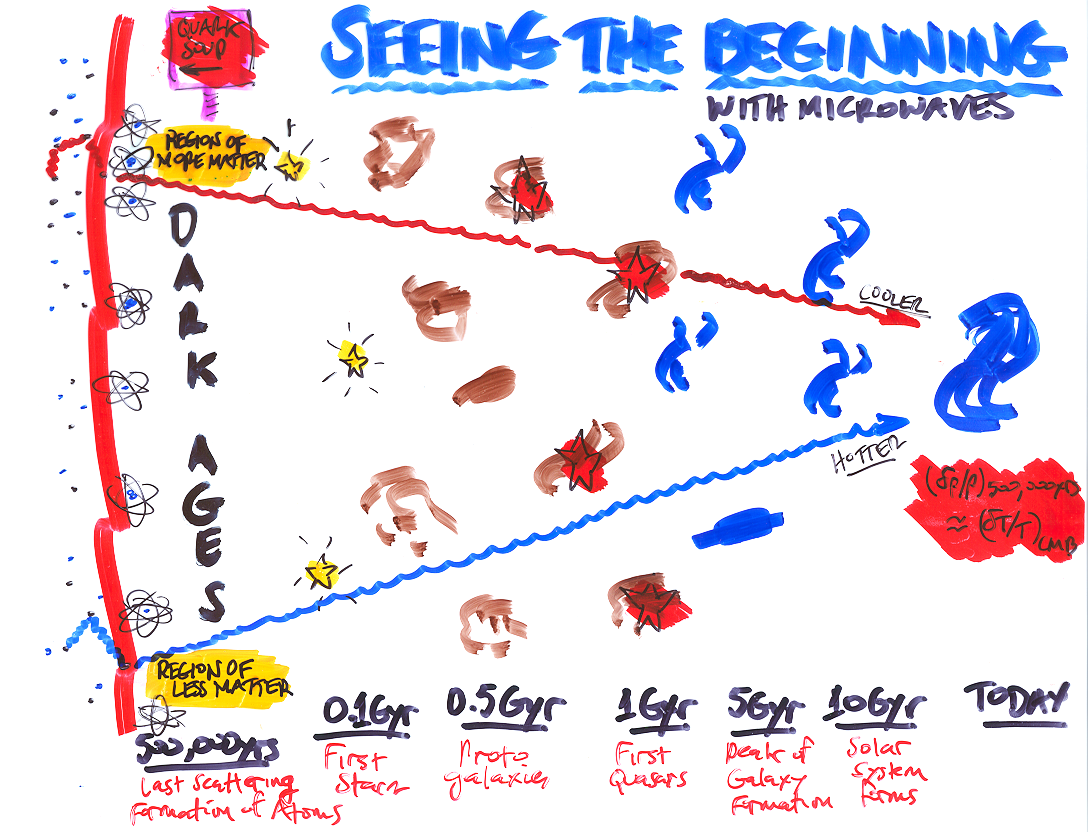 QUARK
SOUP
SEEING THE BEGINNING
WITH MICROWAVES
REGION OF
MORE MATTER
DARK AGES
COOLER
HOTTER
(δρ/ρ)500,000yrs
≈ (δT/T)CMB
REGION OF
LESS MATTER
500,000yrs
Last Scattering
Formation of Atoms
0.1Gyr
First
Stars
0.5Gyr
Proto
galaxies
1Gyr
First
Quasars
5Gyr
Peak of
Galaxy
Formation
10Gyr
Solar
System
forms
TODAY